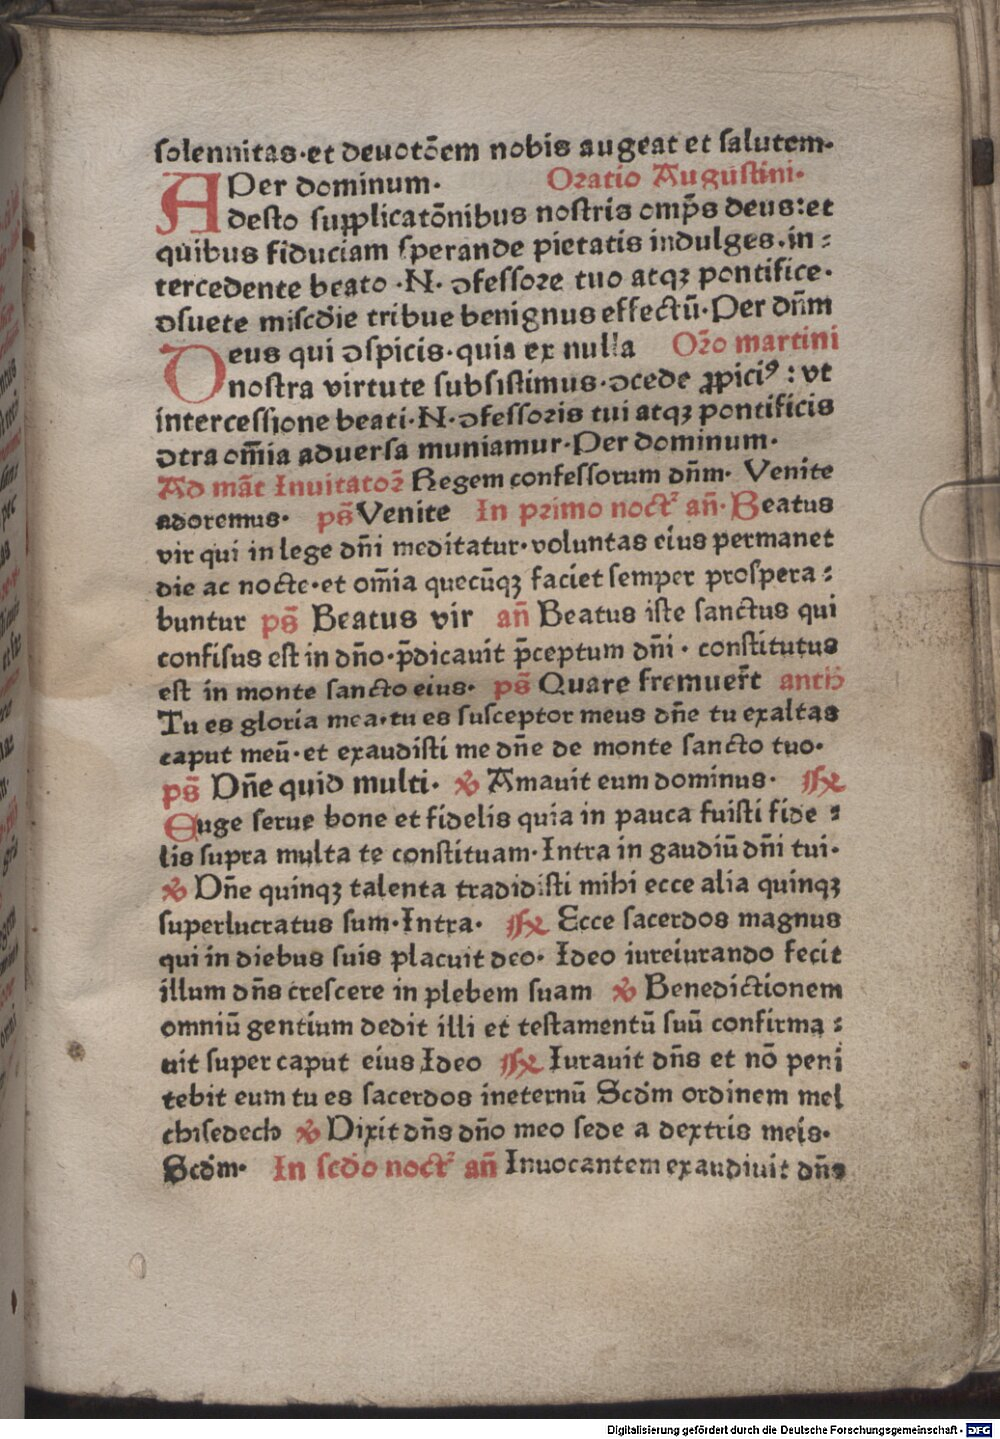 solennitas·et deuotōem nobis augeat et salutem·
Per dominum· Oratio Augustini·
Adesto supplicatōnibus nostris omp̄s deus:et
quibus fiduciam sperande pietatis indulges.in:
tercedente beato ·N· ꝯfessore tuo atqꝫ pontifice·
ꝯsuete misc̄die tribue benignus effectū·Per dn̄m
Deus qui ꝯspicis·quia ex nulla Or̄o martini
nostra virtute subsistimus·ꝯcede ꝓpiciꝰ: vt
intercessione beati·N·ꝯfessoris tui atqꝫ pontificis
ꝯtra om̄ia aduersa muniamur·Per dominum·
Ad mat̄ Inuitator̄ Regem confessorum dn̄m· Venite
adoremus· ps̄ Venite In primo noct᷑ an̄·Beatus
vir qui in lege dn̄i meditatur·voluntas eius permanet
die ac nocte·et om̄ia quecūqꝫ faciet semper prospera:
buntur ps̄ Beatus vir an̄ Beatus iste sanctus qui
confisus est in dn̄o·p̄dicauit p̄ceptum dn̄i· constitutus
est in monte sancto eius· ps̄ Quare fremuer̄t anth
Tu es gloria mea·tu es susceptor meus dn̄e tu exaltas
caput meū·et exaudisti me dn̄e de monte sancto tuo·
ps̄ Dn̄e quid multi· ℣ Amauit eum dominus· ℟
Euge serue bone et fidelis quia in pauca fuisti fide:
lis supra multa te constituam·Intra in gaudiū dn̄i tui·
℣ Dn̄e quinqꝫ talenta tradidisti mihi ecce alia quinqꝫ
superlucratus sum·Intra· ℟ Ecce sacerdos magnus
qui in diebus suis placuit deo· Ideo iureiurando fecit
illum dn̄s crescere in plebem suam ℣ Benedictionem
omniū gentium dedit illi et testamentū suū confirma:
uit super caput eius Ideo ℟ Iurauit dn̄s et nō peni
tebit eum tu es sacerdos ineternū Scd̄m ordinem mel
chisedech ℣ Dixit dn̄s dn̄o meo sede a dextris meis·
Scd̄m· In scd̄o noct᷑ an̄ Inuocantem exaudiuit dn̄s
Digitalisierung gefördert durch die Deutsche Forschungsgemeinschaft - DFG